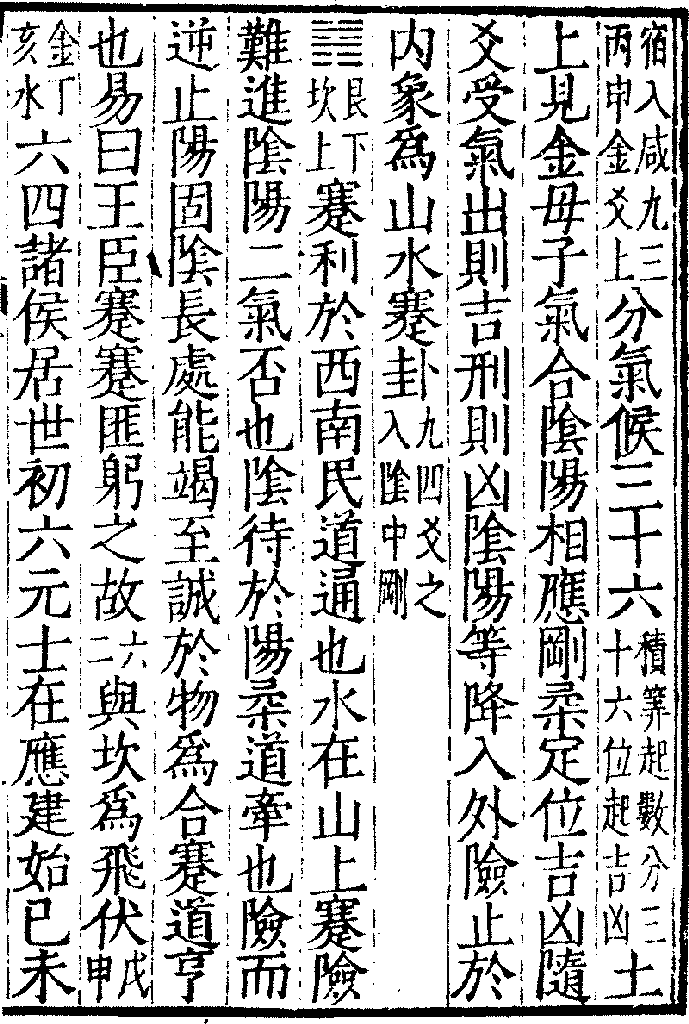 宿入咸九三丙申金爻上分氣候三十六積筭起數分三十六位起吉凶土
上見金母子氣合陰陽相應剛柔定位吉凶隨
爻受氣出則吉刑則凶陰陽等降入外險止於
内象爲山水蹇卦九四爻之入陰中剛
䷦艮下坎上蹇利於西南民道通也水在山上蹇險
難進陰陽二氣否也陰待於陽柔道牽也險而
逆止陽固陰長處能竭至誠於物爲合蹇道亨
也易曰王臣蹇蹇匪躬之故六二與坎爲飛伏戊申
金丁亥水六四諸侯居世初六元士在應建始已未